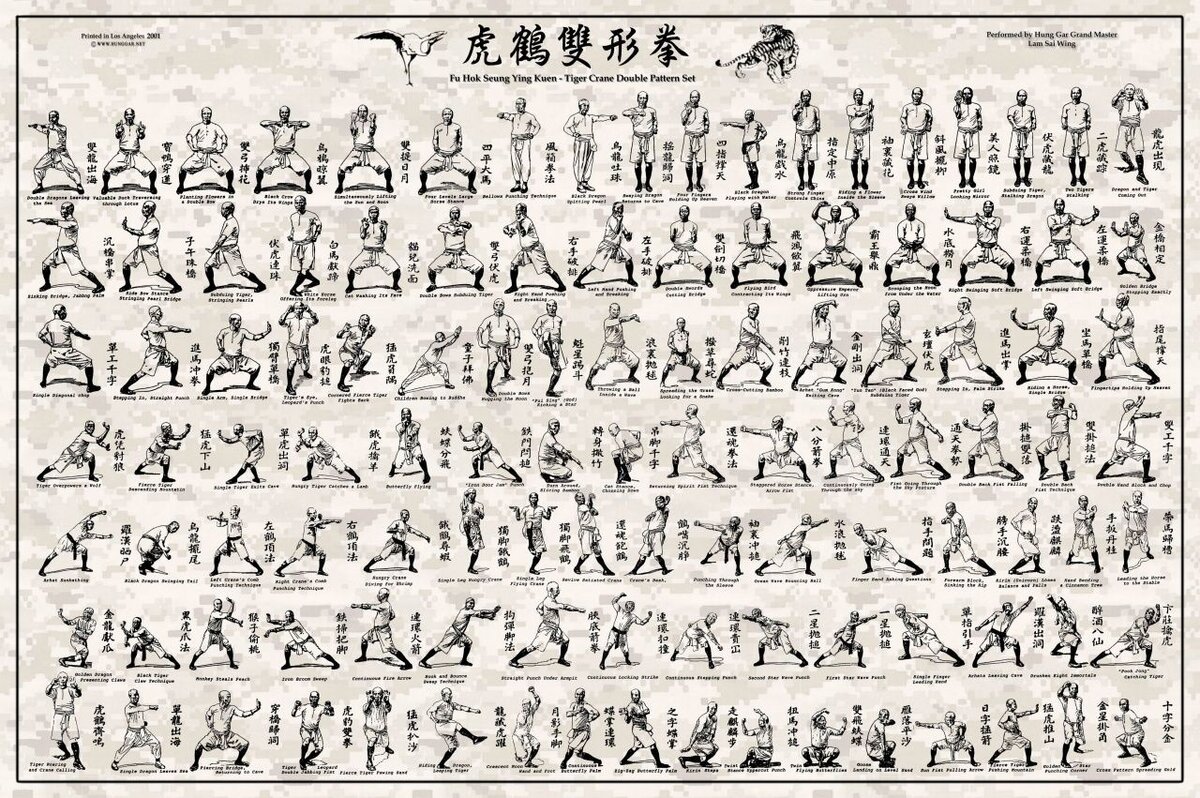 Printed in Los Angeles 2001
© WWW.HUNGGAR.NET
虎鶴雙形拳
Fu Hok Seung Ying Kuen - Tiger Crane Double Pattern Set
Performed by Hung Gar Grand Master
Lam Sai Wing
龍虎出現
Dragon and Tiger
Coming Out
二虎藏踪
Two Tigers
Stalking
伏虎藏龍
Subduing Tiger,
Stalking Dragon
美人照鏡
Pretty Girl
Looking Mirror
斜風擺柳
Cross Wind
Sways Willow
袖裏藏花
Hiding a Flower
Inside the Sleeve
指定中原
Strong Finger
Controls China
烏龍戲水
Black Dragon
Playing with Water
四指撐天
Four Fingers
Holding Up Heaven
烏龍吐珠
Black Dragon
Spitting Pearl
風箱拳法
Bellows Punching Technique
四平大馬
Four Levels Large
Horse Stance
雙提日月
Simultaneously Lifting
the Sun and Moon
烏鴉晾翼
Black Crow
Drys Its Wings
雙弓插花
Planting Flowers in
a Double Bow
寶鴨穿蓮
Valuable Duck Traversing
through Lotus
雙龍出海
Double Dragons Leaving
the Sea
金橋相定
Golden Bridge
Stepping Exactly
左運柔橋
Left Swinging Soft Bridge
右運柔橋
Right Swinging Soft Bridge
水底撈月
Grasping the Moon
from Under the Water
霸王舉鼎
Oppressive Emperor
Lifting Urn
飛鴻歛翼
Flying Bird
Contracting Its Wings
雙劍切橋
Double Swords
Cutting Bridge
左手破排
Left Hand Pushing
and Breaking
右手破排
Right Hand Pushing
and Breaking
雙弓伏虎
Double Bows Subduing Tiger
貓兒洗面
Cat Washing Its Face
白馬獻蹄
White Horse
Offering Its Foreleg
伏虎連珠
Subduing Tiger,
Stringing Pearls
子午珠橋
Side Bow Stance,
Stringing Pearl Bridge
沉橋串掌
Sinking Bridge, Jabbing Palm
指尾撐天
Fingertips Holding Up Heaven
坐馬單橋
Riding a Horse,
Single Bridge
進馬出掌
Stepping In, Palm Strike
玄壇伏虎
"Yun Tan" (Black Faced God)
Subduing Tiger
金剛出洞
Arhat "Gum Kong"
Exiting Cave
削竹連枝
Cross-Cutting Bamboo
撥草尋蛇
Spreading the Grass
Looking for a Snake
浪裏拋毬
Throwing a Ball
Inside a Wave
魁星踢斗
"Fui Sing" (God)
Kicking a Star
雙弓抱月
Double Bows
Hugging the Moon
童子拜佛
Children Bowing to Buddha
猛虎負隅
Cornered Fierce Tiger
Fights Back
虎眼豹搥
Tiger's Eye,
Leopard's Punch
獨臂單橋
Single Arm, Single Bridge
進馬冲拳
Stepping In, Straight Punch
單工千字
Single Diagonal Chop
雙工千字
Double Hand Block and Chop
雙掛搥法
Double Back
Fist Technique
掛搥雙落
Double Back Fist Falling
通天拳勢
Fist Going Through
the Sky Posture
連環通天
Continuously Going
Through the Sky
八分箭拳
Staggered Horse Stance,
Arrow Fist
還魂拳法
Returning Spirit Fist Technique
吊脚千字
Cat Stance,
Chopping Down
轉身撒竹
Turn Around,
Slicing Bamboo
鉄門閂搥
"Iron Door Jam" Punch
蚨蝶分飛
Butterfly Flying
餓虎擒羊
Hungry Tiger Catches a Lamb
單虎出洞
Single Tiger Exits Cave
猛虎下山
Fierce Tiger
Descending Mountain
虎凭豺狼
Tiger Overpowers a Wolf
帶馬歸槽
Leading the Horse
to the Stable
手扳丹桂
Hand Bending
a Cinnamon Tree
跌蕩麒麟
Kirin (Unicorn) Loses
Balance and Falls
膀手沉腰
Forearm Block,
Sinking the Hip
指手問題
Finger Hand Asking Questions
水浪拋毬
Ocean Wave Bouncing Ball
袖裏冲搥
Punching Through
the Sleeve
鶴嘴沉靜
Crane's Beak,
獨脚飛鶴
獨脚餓鶴
Single Leg
Flying Crane
Single Leg Hungry Crane
餓鶴尋蝦
Hungry Crane
Diving for Shrimp
右鶴頂法
Right Crane's Comb
Punching Technique
左鶴頂法
Left Crane's Comb
Punching Technique
烏龍擺尾
Black Dragon Swinging Tail
羅漢晒尸
Arhat Sunbathing
卞莊擒虎
Catching Tiger
醉酒八仙
Drunken Eight Immortals
羅漢出洞
Arhats Leaving Cave
單指引手
Single Finger
Leading Hand
一星拋搥
First Star Wave Punch
二星拋搥
Second Star Wave Punch
連環貴冚
Continuous Stepping Punch
連環扣撞
Continuous Locking Strike
腋底箭拳
Straight Punch Under Armpit
狗彈脚法
Hook and Bounce
Sweep Technique
連環火箭
Continuous Fire Arrow
鉄掃把脚
Iron Broom Sweep
猴子偷桃
Monkey Steals Peach
黑虎爪法
Black Tiger
Claw Technique
金龍獻爪
Golden Dragon
Presenting Claws
十字分金
Cross Pattern Spreading Gold
金星掛角
Golden Star
Punching Corner
猛虎推山
Fierce Tiger
Pushing Mountain
日字搥箭
Sun Fist Falling Arrow
雁落平沙
Goose
Landing on Level Sand
雙飛蚨蝶
Twin
Flying Butterflies
扭馬冲搥
Twist
Stance Uppercut Punch
走麒麟步
Kirin Steps
之字蝶掌
Zig-Zag Butterfly Palm
蝶掌連環
Continuous
Butterfly Palm
月影手脚
Crescent Moon
Hand and Foot
龍藏虎躍
Hiding Dragon,
Leaping Tiger
猛虎扒沙
Fierce Tiger Pawing Sand
虎豹雙拳
Tiger Leopard
Double Jabbing Fist
穿橋歸洞
Piercing Bridge,
Returning to Cave
單龍出海
Single Dragon Leaves Sea
虎鶴齊鳴
Tiger Roaring
and Crane Calling